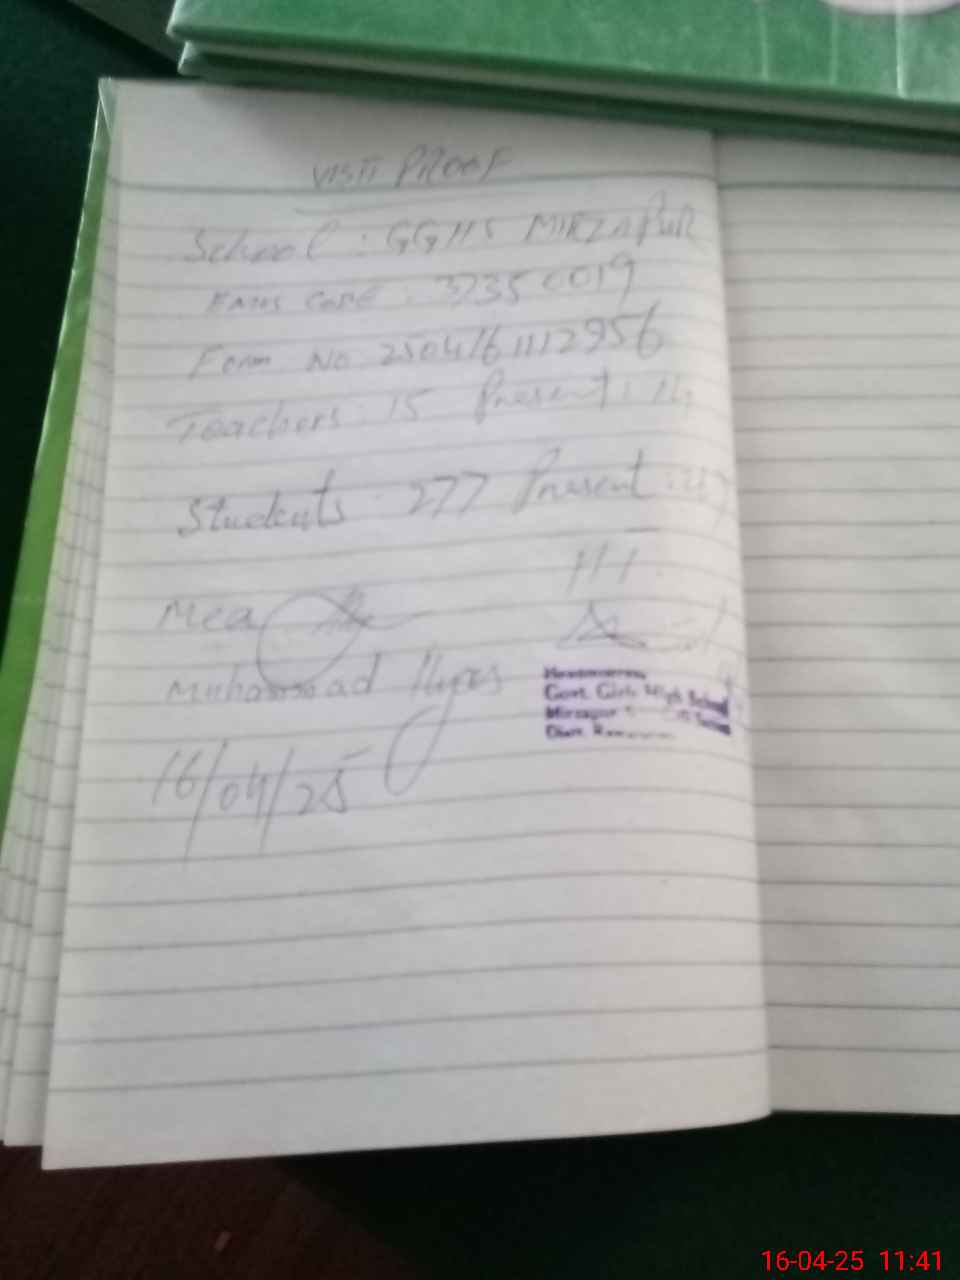 VISIT PROOF
School : GGHS MIRZAPUR
EMIS CODE : 37350019
Form No 2504161112956
Teachers : 15 Present : 14
Students : 277 Present :
Mea
Muhammad Ilyas
16/04/25
Headmistress
Govt. Girls High School
Mirzapur
Distt.
16-04-25 11:41